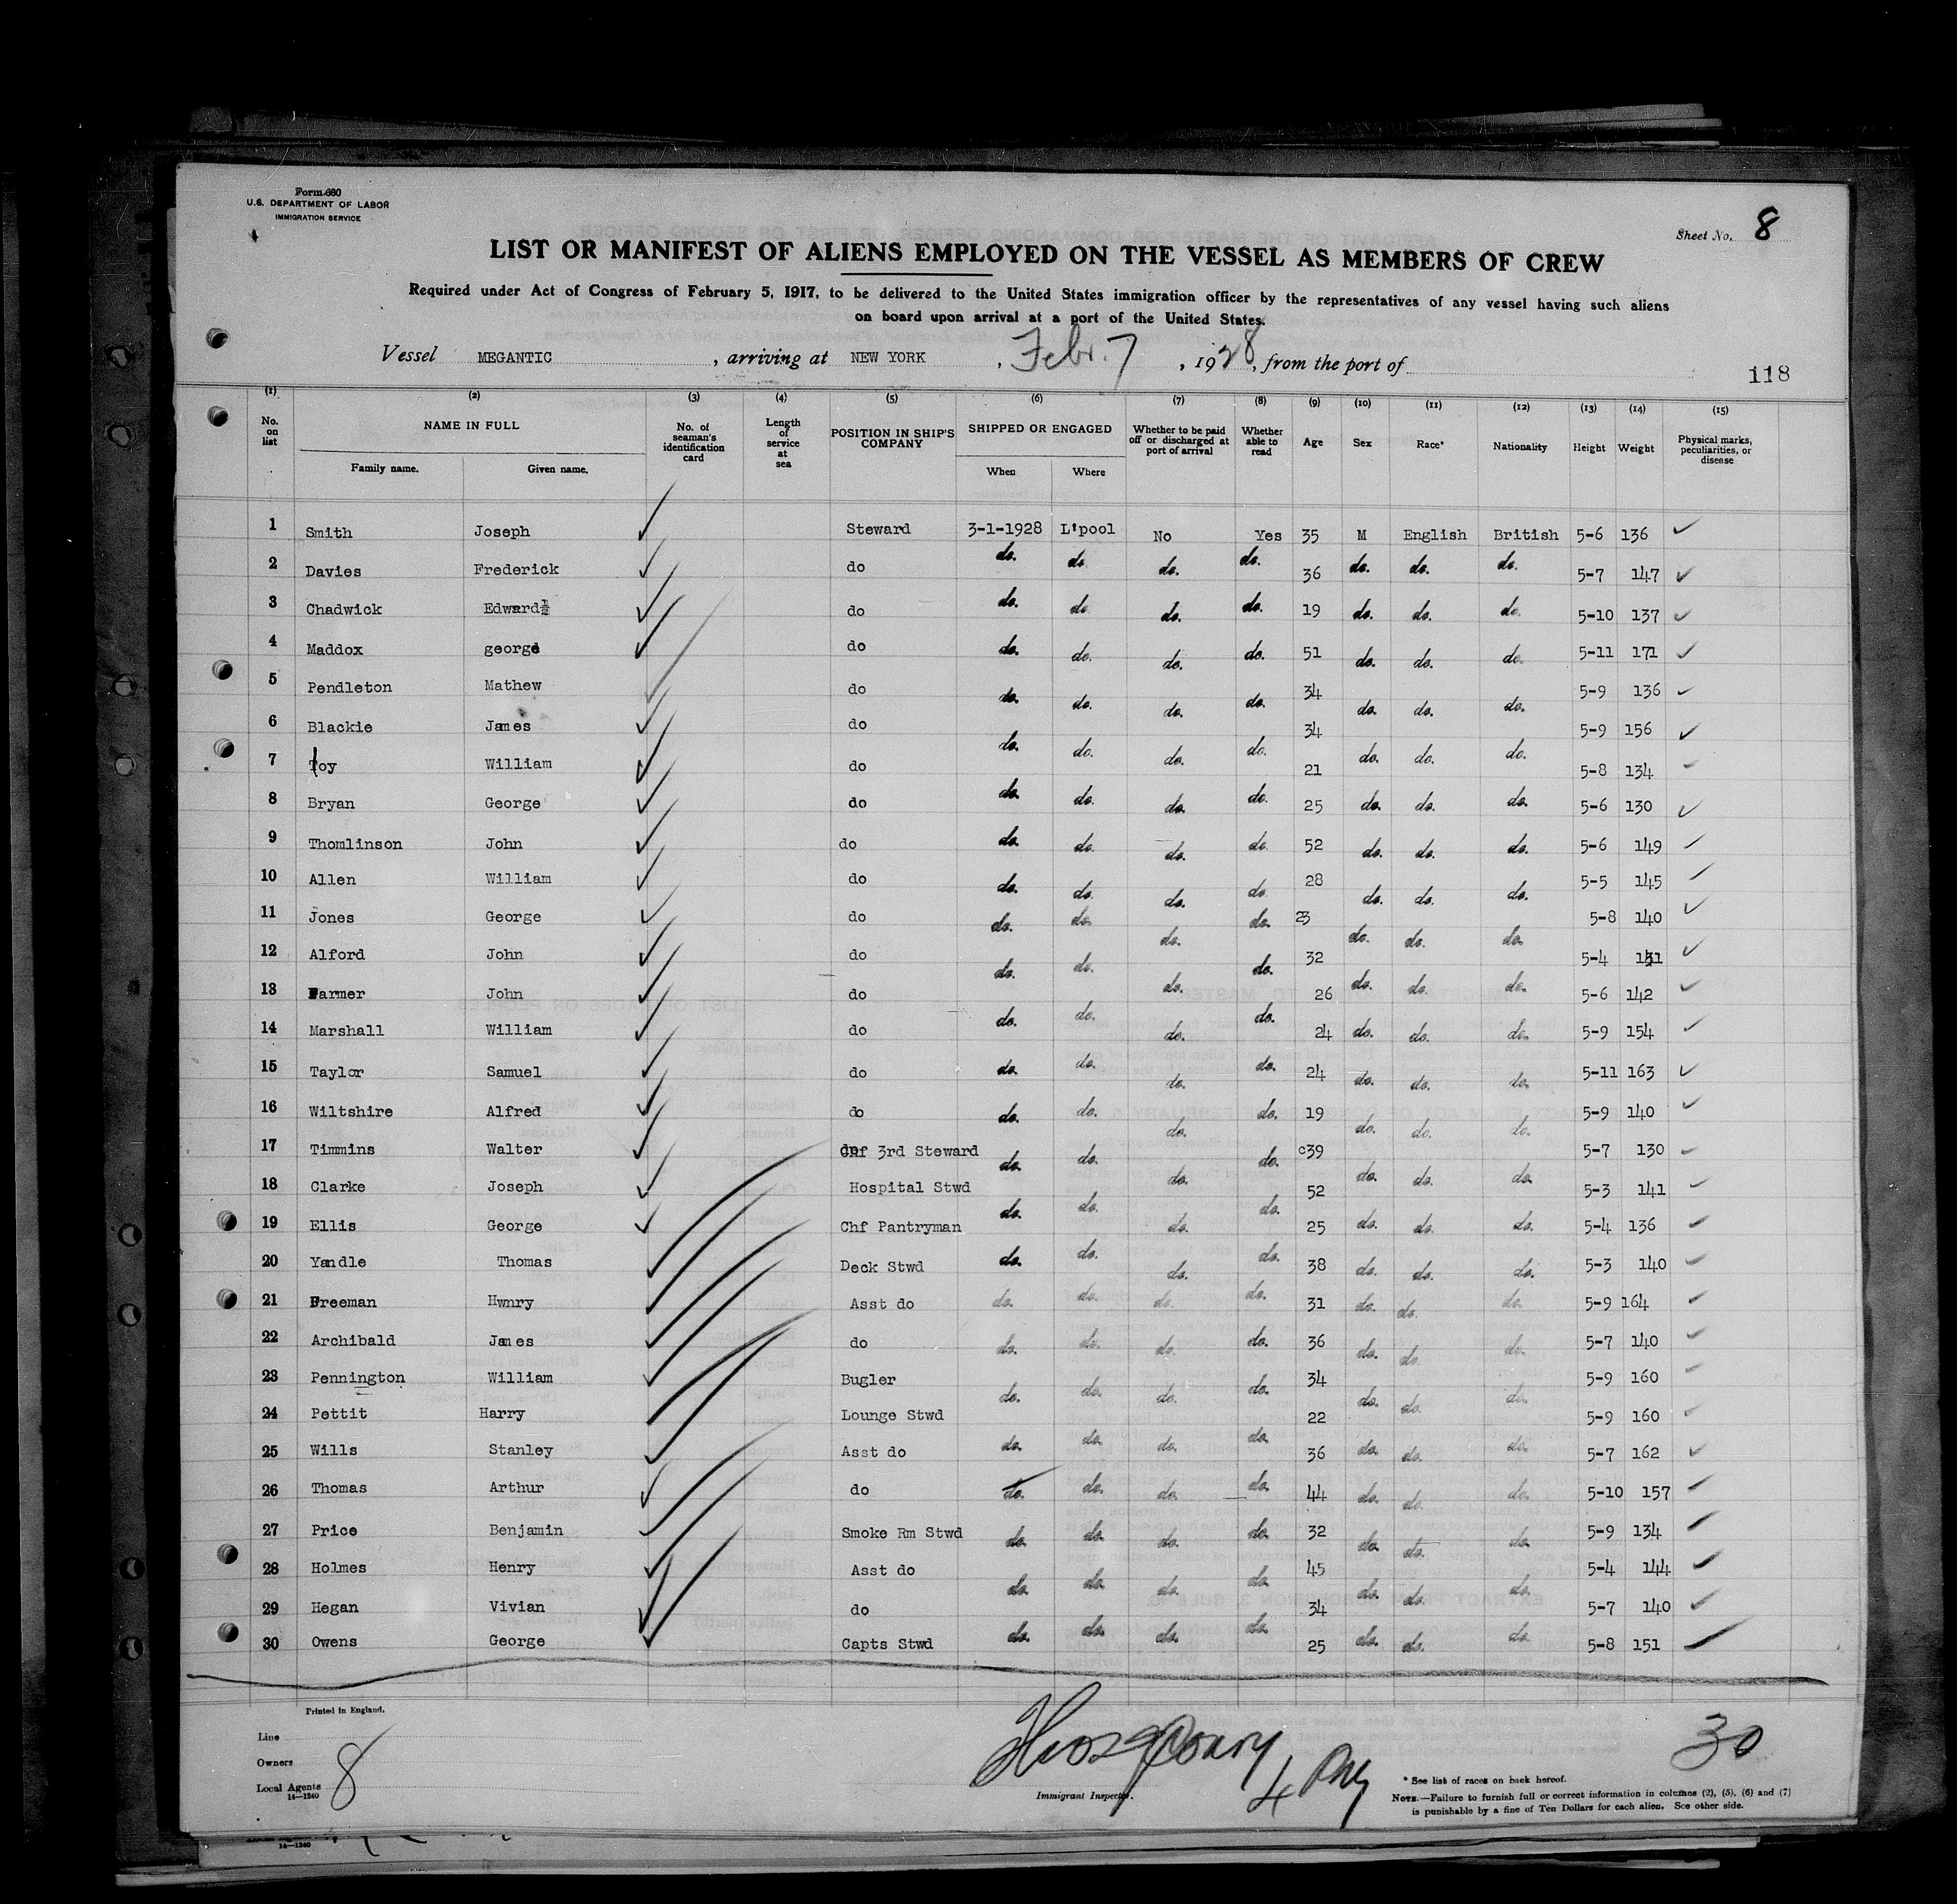 Form 680
U.S. DEPARTMENT OF LABOR
IMMIGRATION SERVICE
Sheet No. 8
LIST OR MANIFEST OF ALIENS EMPLOYED ON THE VESSEL AS MEMBERS OF CREW
Required under Act of Congress of February 5, 1917, to be delivered to the United States immigration officer by the representatives of any vessel having such aliens
on board upon arrival at a port of the United States.
Vessel MEGANTIC, arriving at NEW YORK, Febr. 7, 1928, from the port of
118
(1) (2) (3) (4) (5) (6) (7) (8) (9) (10) (11) (12) (13) (14) (15)
No. on list NAME IN FULL Family name. Given name. No. of seaman's identification card Length of service at sea POSITION IN SHIP'S COMPANY SHIPPED OR ENGAGED When Where Whether to be paid off or discharged at port of arrival Whether able to read Age Sex Race* Nationality Height Weight Physical marks, peculiarities, or disease
1 Smith Joseph Steward 3-1-1928 L'pool No Yes 35 M English British 5-6 136
2 Davies Frederick do do. do. do. do. 36 do. do. do. 5-7 147
3 Chadwick Edward do do. do. do. do. 19 do. do. do. 5-10 137
4 Maddox george do do. do. do. do. 51 do. do. do. 5-11 171
5 Pendleton Mathew do do. do. do. do. 34 do. do. do. 5-9 136
6 Blackie James do do. do. do. do. 34 do. do. do. 5-9 156
7 Toy William do do. do. do. do. 21 do. do. do. 5-8 134
8 Bryan George do do. do. do. do. 25 do. do. do. 5-6 130
9 Thomlinson John do do. do. do. do. 52 do. do. do. 5-6 149
10 Allen William do do. do. do. do. 28 do. do. do. 5-5 145
11 Jones George do do. do. do. do. 23 do. do. do. 5-8 140
12 Alford John do do. do. do. do. 32 do. do. do. 5-4
13 Farmer John do do. do. do. do. 26 do. do. do. 5-6 142
14 Marshall William do do. do. do. do. 24 do. do. do. 5-9 154
15 Taylor Samuel do do. do. do. do. 24 do. do. do. 5-11 163
16 Wiltshire Alfred do do. do. do. do. 19 do. do. do. 5-9 140
17 Timmins Walter Chf 3rd Steward do. do. do. do. 39 do. do. do. 5-7 130
18 Clarke Joseph Hospital Stwd do. do. do. do. 52 do. do. do. 5-3 141
19 Ellis George Chf Pantryman do. do. do. do. 25 do. do. do. 5-4 136
20 Yandle Thomas Deck Stwd do. do. do. do. 38 do. do. do. 5-3 140
21 Freeman Hwnry Asst do do. do. do. do. 31 do. do. do. 5-9 164
22 Archibald James do do. do. do. do. 36 do. do. do. 5-7 140
23 Pennington William Bugler do. do. do. do. 34 do. do. do. 5-9 160
24 Pettit Harry Lounge Stwd do. do. do. do. 22 do. do. do. 5-9 160
25 Wills Stanley Asst do do. do. do. do. 36 do. do. do. 5-7 162
26 Thomas Arthur do do. do. do. do. 44 do. do. do. 5-10 157
27 Price Benjamin Smoke Rm Stwd do. do. do. do. 32 do. do. do. 5-9 134
28 Holmes Henry Asst do do. do. do. do. 45 do. do. do. 5-4 144
29 Hegan Vivian do do. do. do. do. 34 do. do. do. 5-7 140
30 Owens George Capts Stwd do. do. do. do. 25 do. do. do. 5-8 151
Printed in England.
Line
Owners
Local Agents 8
14—1240
Immigrant Inspector.
30
* See list of races on back hereof.
NOTE.—Failure to furnish full or correct information in columns (2), (5), (6) and (7)
is punishable by a fine of Ten Dollars for each alien. See other side.
14—1240